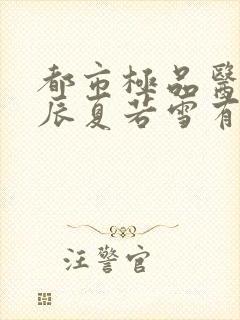 都市極品醫
辰夏若雪有
汪警官